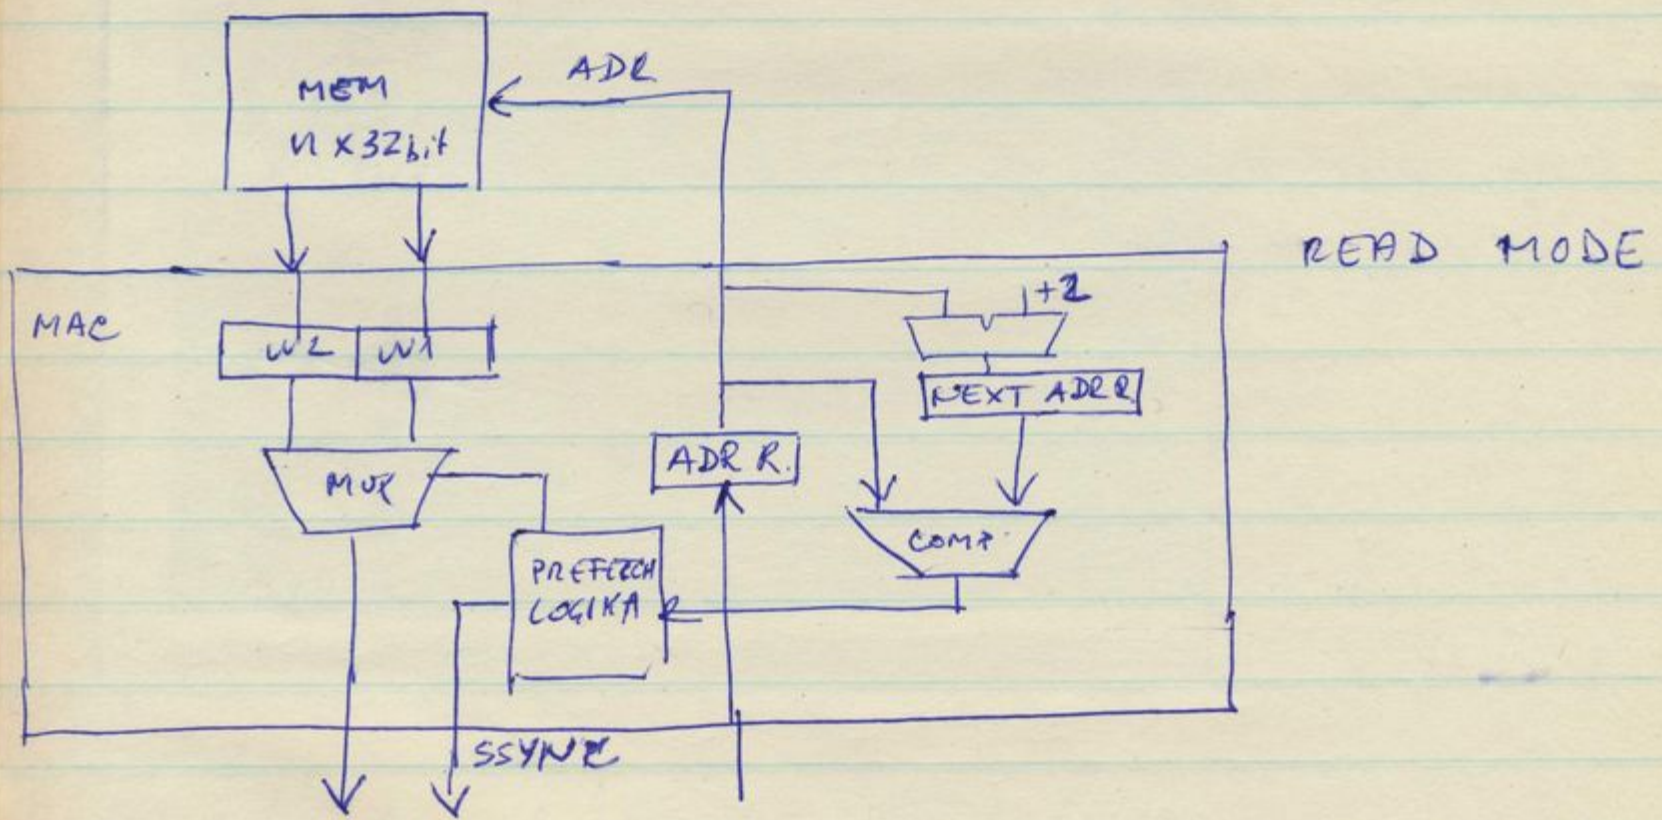 MEM
n x 32bit
ADR
READ MODE
MAC
W2
W1
+2
NEXT ADR R.
ADR R.
MUX
COMP.
PREFETCH
LOGIKA
SSYNC